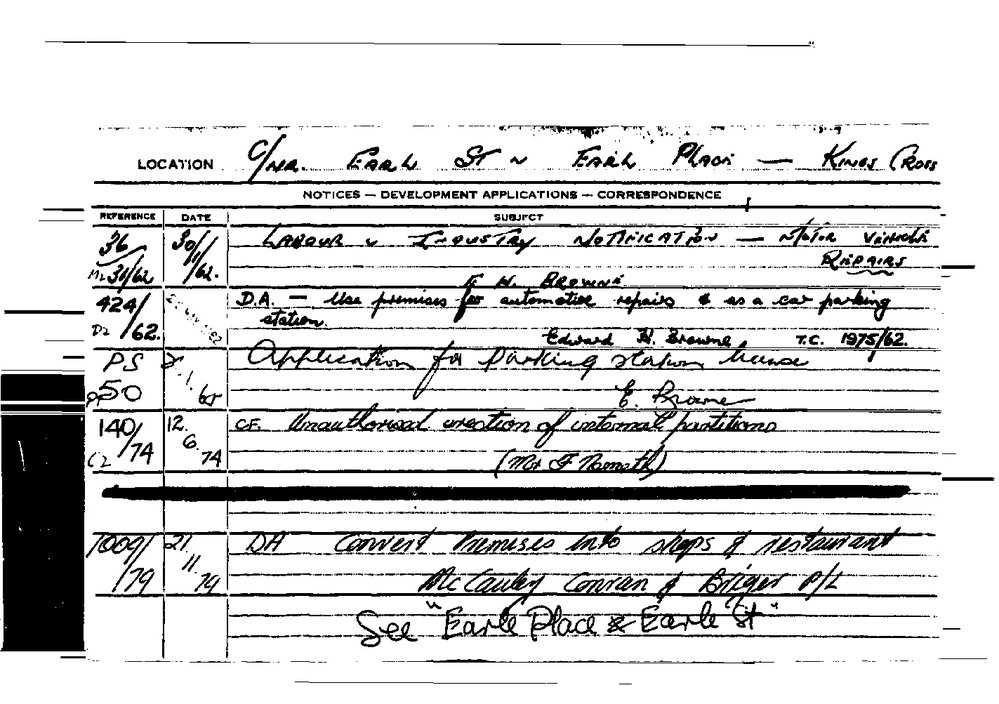 LOCATION C/NR. EARL ST & EARL PLACE — KINGS CROSS
NOTICES — DEVELOPMENT APPLICATIONS — CORRESPONDENCE
REFERENCE DATE SUBJECT
36 30/1/62. LABOUR & INDUSTRY NOTIFICATION — MOTOR VEHICLE
31/62 REPAIRS
E H. BROWNE
424/62. D.A. — Use premises for automotive repairs & as a car parking
D2 station.
Edward H. Browne T.C. 1975/62.
PS 50 Application for parking station license
E. Browne
140/74 12.6.74 C.F. Unauthorised erection of internal partitions
C2 (Mr F Nemeth)
1009/79 21.11.79 DA Convert Premises into shops & restaurant
McCauley Conran & Briger P/L
See "Earle Place & Earle St"